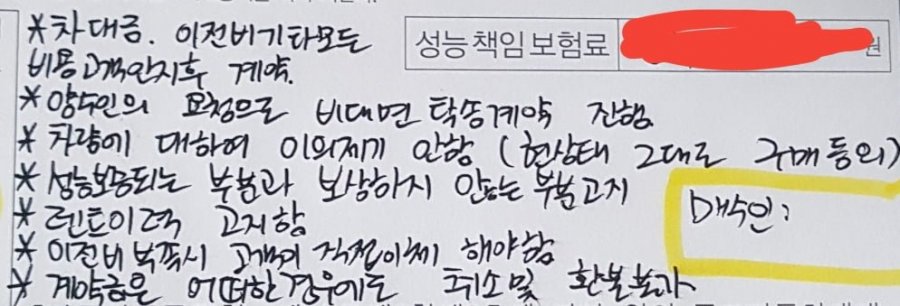 *차대금. 이전비기타모든
비용고객인지후 계약.
성능책임보험료 원
*양수인의 요청으로 비대면탁송계약 진행
*차량에 대하여 이의제기 안함 (현상태 그대로 구매동의)
*성능보증되는 부분과 보상하지 않는부분고지
*렌트이력 고지함
매수인:
*이전비 부족시 고객이 직접이체 해야함
*계약금은 어떠한경우에도 취소및 환불불가